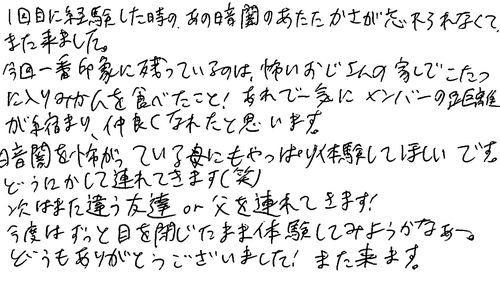 1回目に経験した時の、あの暗闇のあたたかさが忘れられなくて、
また来ました。
今回一番印象に残っているのは、怖いおじさんの家でこたつ
に入りみかんを食べたこと！あれで一気にメンバーの距離
が縮まり、仲良くなれたと思います。
暗闇を怖がっている母にもやっぱり体験してほしいです。
どうにかして連れてきます(笑)
次はまた違う友達or父を連れてきます！
今度はずっと目を閉じたまま体験してみようかなぁ〜。
どうもありがとうございました！また来ます。